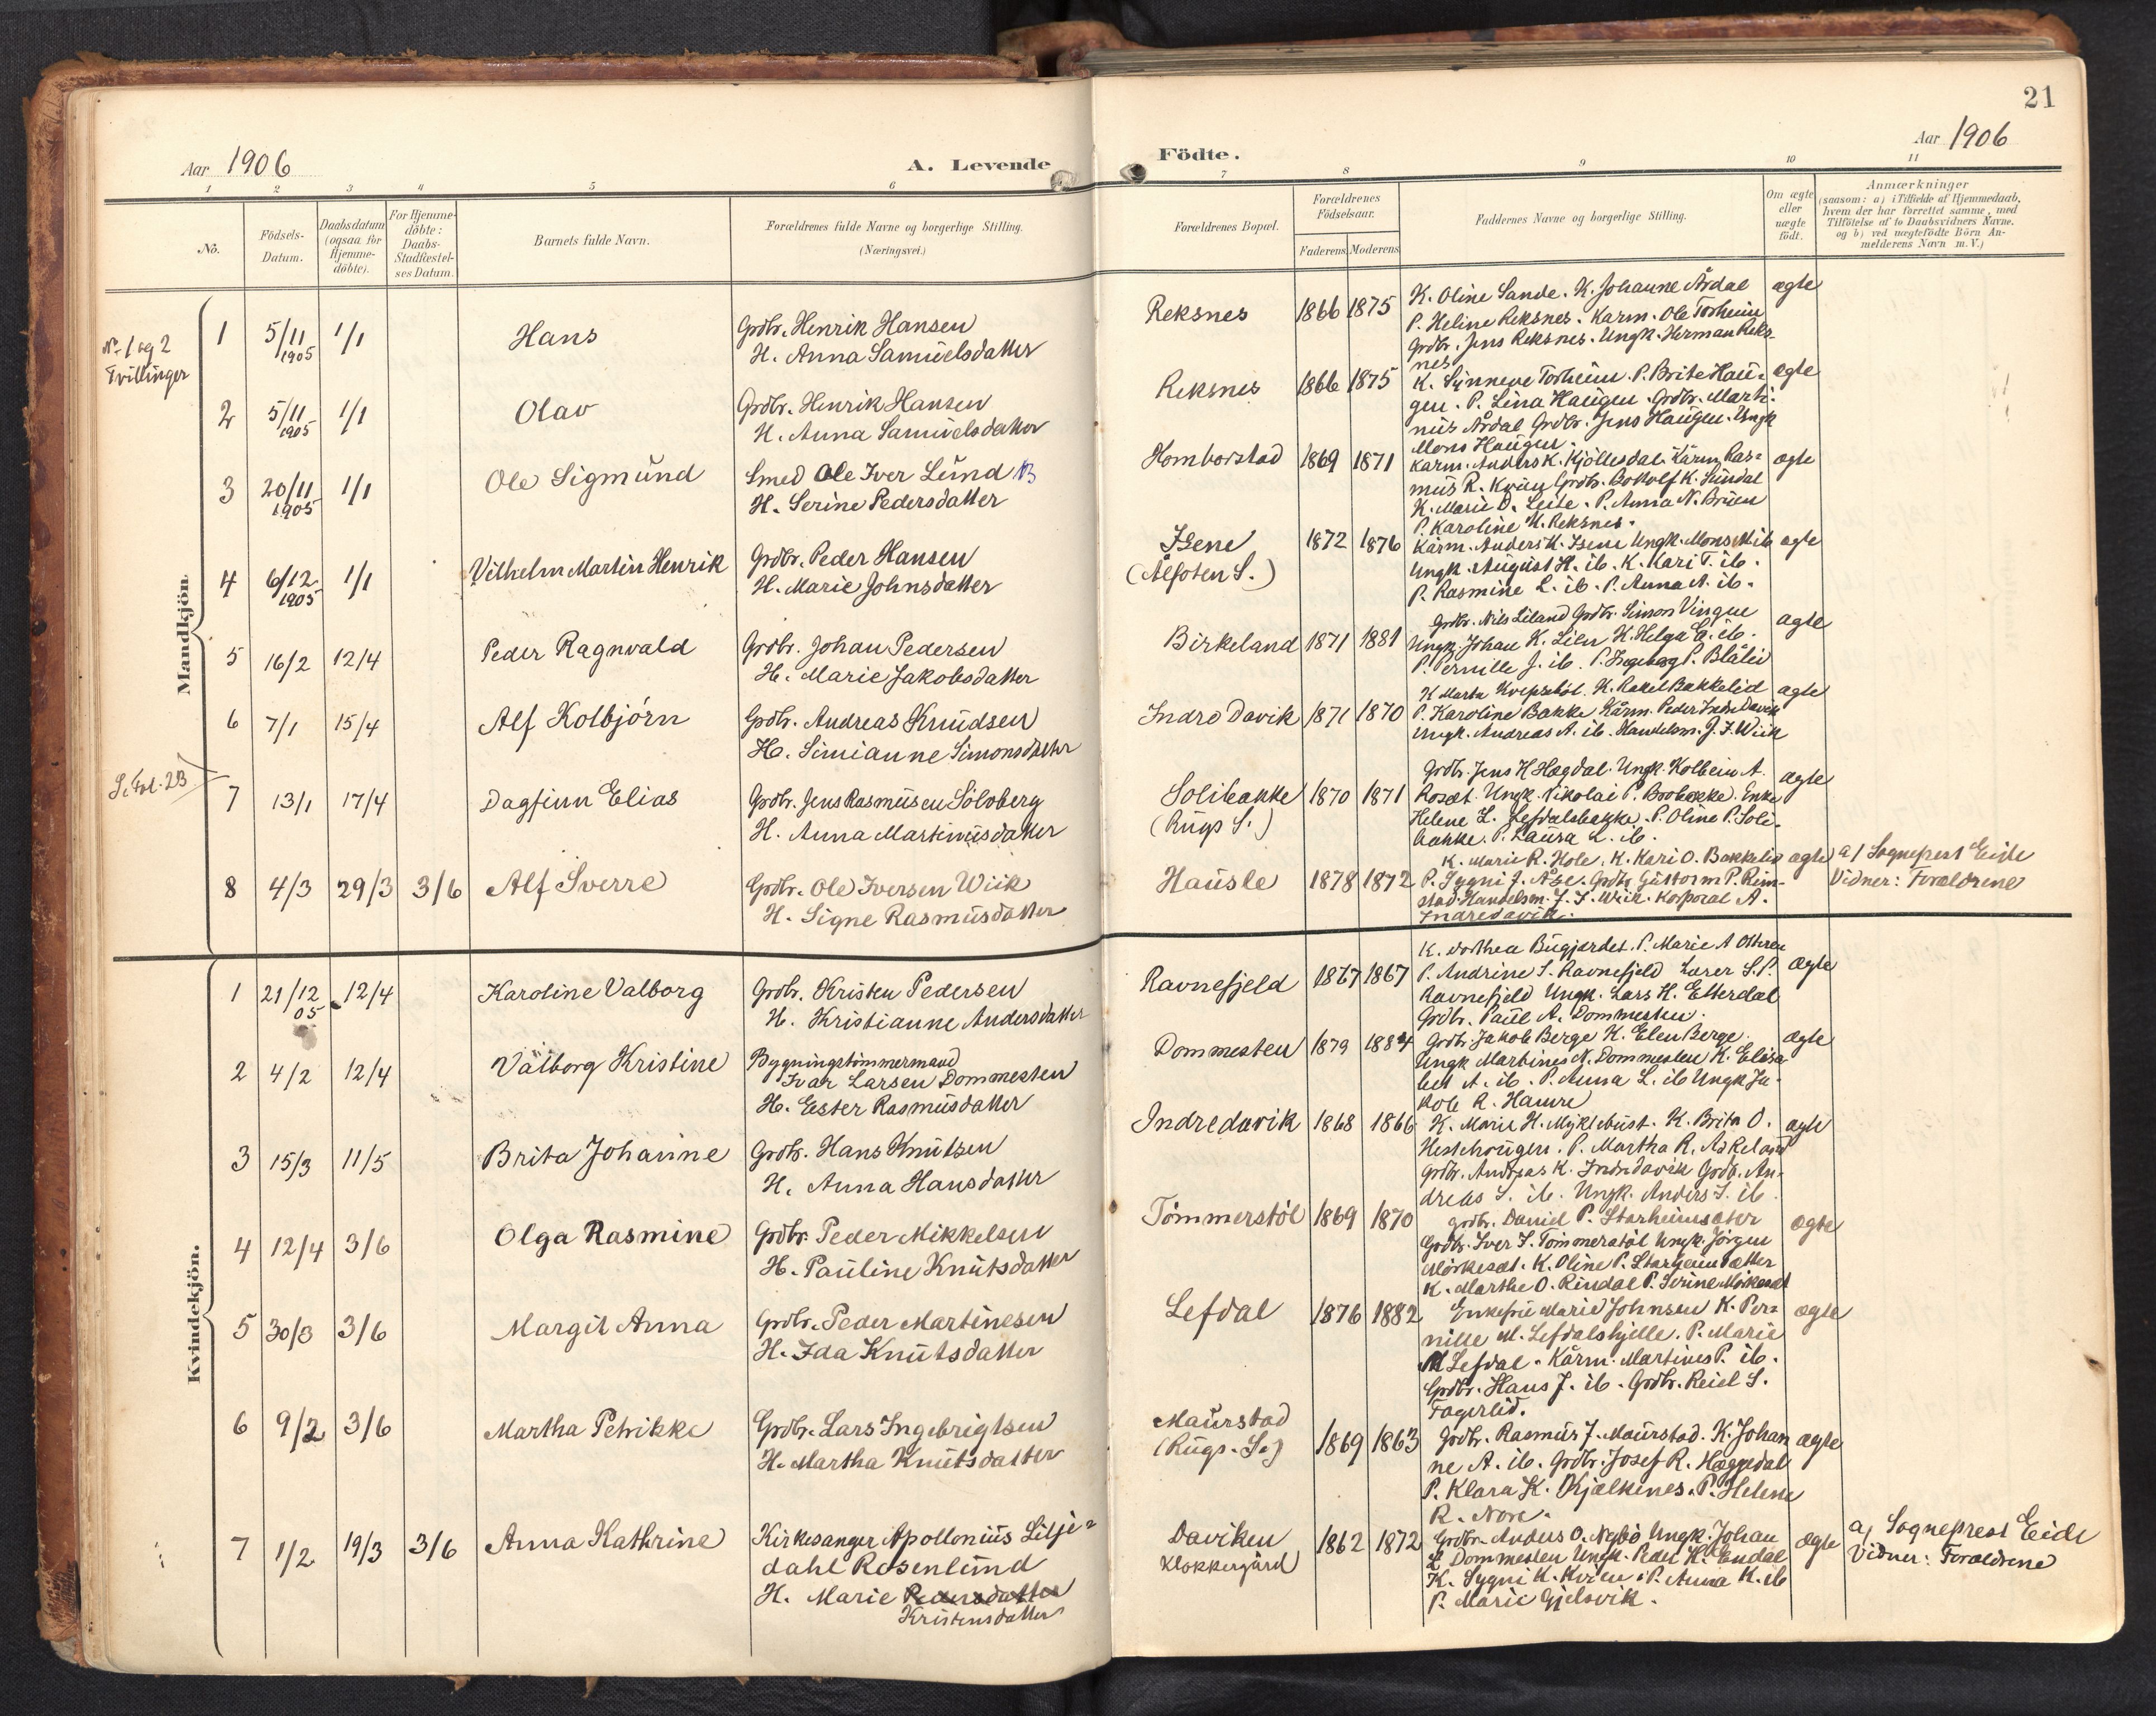 21
Aar 1906
A. Levende
Födte.
Aar 1906
1 2 3 4 5 6 7 8 9 10 11
No.
Födsels-
Datum.
Daabsdatum
(ogsaa for
Hjemme-
döbte).
For Hjemme-
döbte:
Daabs-
Stadfæstel-
ses Datum.
Barnets fulde Navn.
Forældrenes fulde Navne og borgerlige Stilling.
(Næringsvei.)
Forældrenes Bopæl.
Forældrenes
Födselsaar.
Faderens Moderens
Faddernes Navne og borgerlige Stilling.
Om ægte
eller
uægte
födt.
Anmærkninger
(saasom: a) i Tilfælde af Hjemmedaab,
hvem der har forrettet samme, med
Tilföielse af to Daabsvidners Navne.
og b) ved uægtefödte Börn An-
melderens Navn m.V.)
Mandkjön.
No 1 og 2
Tvillinger
1 5/11 1905 1/1 Hans
Grdbr. Henrik Hansen
H. Anna Samuelsdatter
Reksnes 1866 1875
K. Oline Sande. K. Johanne Årdal
P. Heline Reksnes. Karm. Ole Torheim
Grdbr. Jens Reksnes. Ungk. Herman Reks-
nes
ægte
2 5/11 1905 1/1 Olav
Grdbr. Henrik Hansen
H. Anna Samuelsdatter
Reksnes 1866 1875
K. Synneve Torheim. P. Brite Hau-
gen. P. Lina Haugen. Grdbr. Marti-
nus Årdal Grdbr. Jens Haugen. Ungk
Mons Haugen.
ægte
3 20/11 1905 1/1 Ole Sigmund
Smed Ole Iver Lund
H. Serine Pedersdatter
Homborstad 1869 1871
Karm. Anders K. Kjöllesdal. Kårm. Ras-
mus R. Grdbr. Bottolf K. Sundal
K. Marie O. Leite. P. Anna N. Bruen
P. Karoline H. Reksnes.
ægte
4 6/12 1905 1/1 Vilhelm Martin Henrik
Grdbr. Peder Hansen
H. Marie Johnsdatter
Isene
(Ålfoten S.)
1872 1876
Kårm. Anders K. Isene Ungk. Mons M. ib
Ungk. August H. ib. K. Kari T. ib.
P. Rasmine L. ib. P. Anna A. ib.
ægte
5 16/2 12/4 Peder Ragnvald
Grdbr. Johan Pedersen
H. Marie Jakobsdatter
Birkeland 1871 1881
Grdbr. Nils Leland Grdbr. Simon Vingen
Ungk. Johan K. Lilen K. Helga E. ib.
P. Pernille J. ib. P. Ingeborg P. Blålid
ægte
6 7/1 15/4 Alf Kolbjörn
Grdbr. Andreas Knudsen
H. Simianne Simonsdatter
Indre Davik 1871 1870
K. Marta K. Rakel Bakkelid
P. Karoline Bakke Kårm. Peder Indre Davik
Ungk. Andreas A. ib. Handelsm. J. I. Wiik
ægte
S. Fol. 23
7 13/1 17/4 Dagfinn Elias
Grdbr. Jens Rasmusen Solvberg
H. Anna Martinusdatter
Solibakke
(Rugs S.)
1870 1871
Grdbr. Jens H Hægdal. Ungk. Kolbein A.
Rosæt. Ungk. Nikolai P. Brobakke. Enke
Helene L. Lefdalsbakke. P. Oline P. Soli-
bakke. P. Laura L. ib.
ægte
8 4/3 29/3 3/6 Alf Sverre
Grdbr. Ole Iversen Wiik
H. Signe Rasmusdatter
Hausle 1878 1872
K. Marie R. Hole. K. Kari O. Bakkelid
P. Sygni J. Åse. Grdbr. Guttorm P. Rim-
stad. Handelsm. J. I. Wiik. Korporal A.
Indredavik.
ægte
a/ Sogneprest Eide
Vidner: Forældrene
Kvindekjön.
1 21/12 05 12/4 Karoline Valborg
Grdbr. Kristen Pedersen
H. Kristianne Andersdatter
Ravnefjeld 1867 1867
K. Dorthea Bugjerdet. P. Marie A Otteren
P. Andrine S. Ravnefjeld Lærer S. P.
Ravnefjeld Ungk. Lars H. Etterdal
Grdbr. Paul A. Dommesten.
Ægte
2 4/2 12/4 Valborg Kristine
Bygningstömmermand
Ivar Larsen Dommesten
H. Ester Rasmusdatter
Dommesten 1879 1884
Grdbr. Jakob Berge K. Elen Berge.
Ungk Martines N. Dommesten K. Elisa-
bet A. ib. P. Anna L. ib Ungk Ja-
kob R. Hamre
ægte
3 15/3 11/5 Brita Johanne
Grdbr. Hans Knutsen
H. Anna Hansdatter
Indredavik 1868 1866
K. Marie H. Myklebust. K. Brita O.
Hestehougen. P. Martha R. Askeland
Grdbr. Andreas K. Indredavik Grdb. An-
dreas S. ib. Ungk. Anders S. ib.
ægte
4 12/4 3/6 Olga Rasmine
Grdbr. Peder Mikkelsen
H. Pauline Knutsdatter
Tömmerstöl 1869 1870
Grdbr. Daniel P. Starheimsæter
Grdbr. Iver I. Tömmerstöl Ungk. Jörgen
Mörkesæt. K. Oline P. Starheimsætter
K. Marthe O. Rindal P. Serine Mörkesæt
ægte
5 30/3 3/6 Margit Anna
Grdbr. Peder Martinesen
H. Ida Knutsdatter
Lefdal 1876 1882
Enkefru Marie Johnsen K. Per-
nille M. Lefdalshjelle. P. Marie
M Lefdal. Kårm. Martines P. ib.
Grdbr. Hans J. ib. Grdbr. Reiel S.
Fagerlid.
ægte
6 9/2 3/6 Martha Petrikke
Grdbr. Lars Ingebrigtsen
H. Martha Knutsdatter
Maurstad
(Rugs. S.)
1869 1863
Grdbr. Rasmus J. Maurstad. K. Johan
ne A. ib. Grdbr. Josef R. Hæggedal
P. Klara K. Kjølkenes. P. Helene
R. Nore.
ægte
7 1/2 19/3 3/6 Anna Kathrine
Kirkesanger Apollonius Lilje-
dahl Rosenlund
H. Marie Pedersdatter
Kristensdatter
Daviken
Klokkergård
1862 1872
Grdbr. Anders O. Nybö Ungk. Johan
L Dommesten Ungk. Peder K. Endal
K. Sygni K. P. Anna K. ib
P. Marie Gjelsvik.
ægte
a/ Sogneprest Eide
Vidner: Forældrene